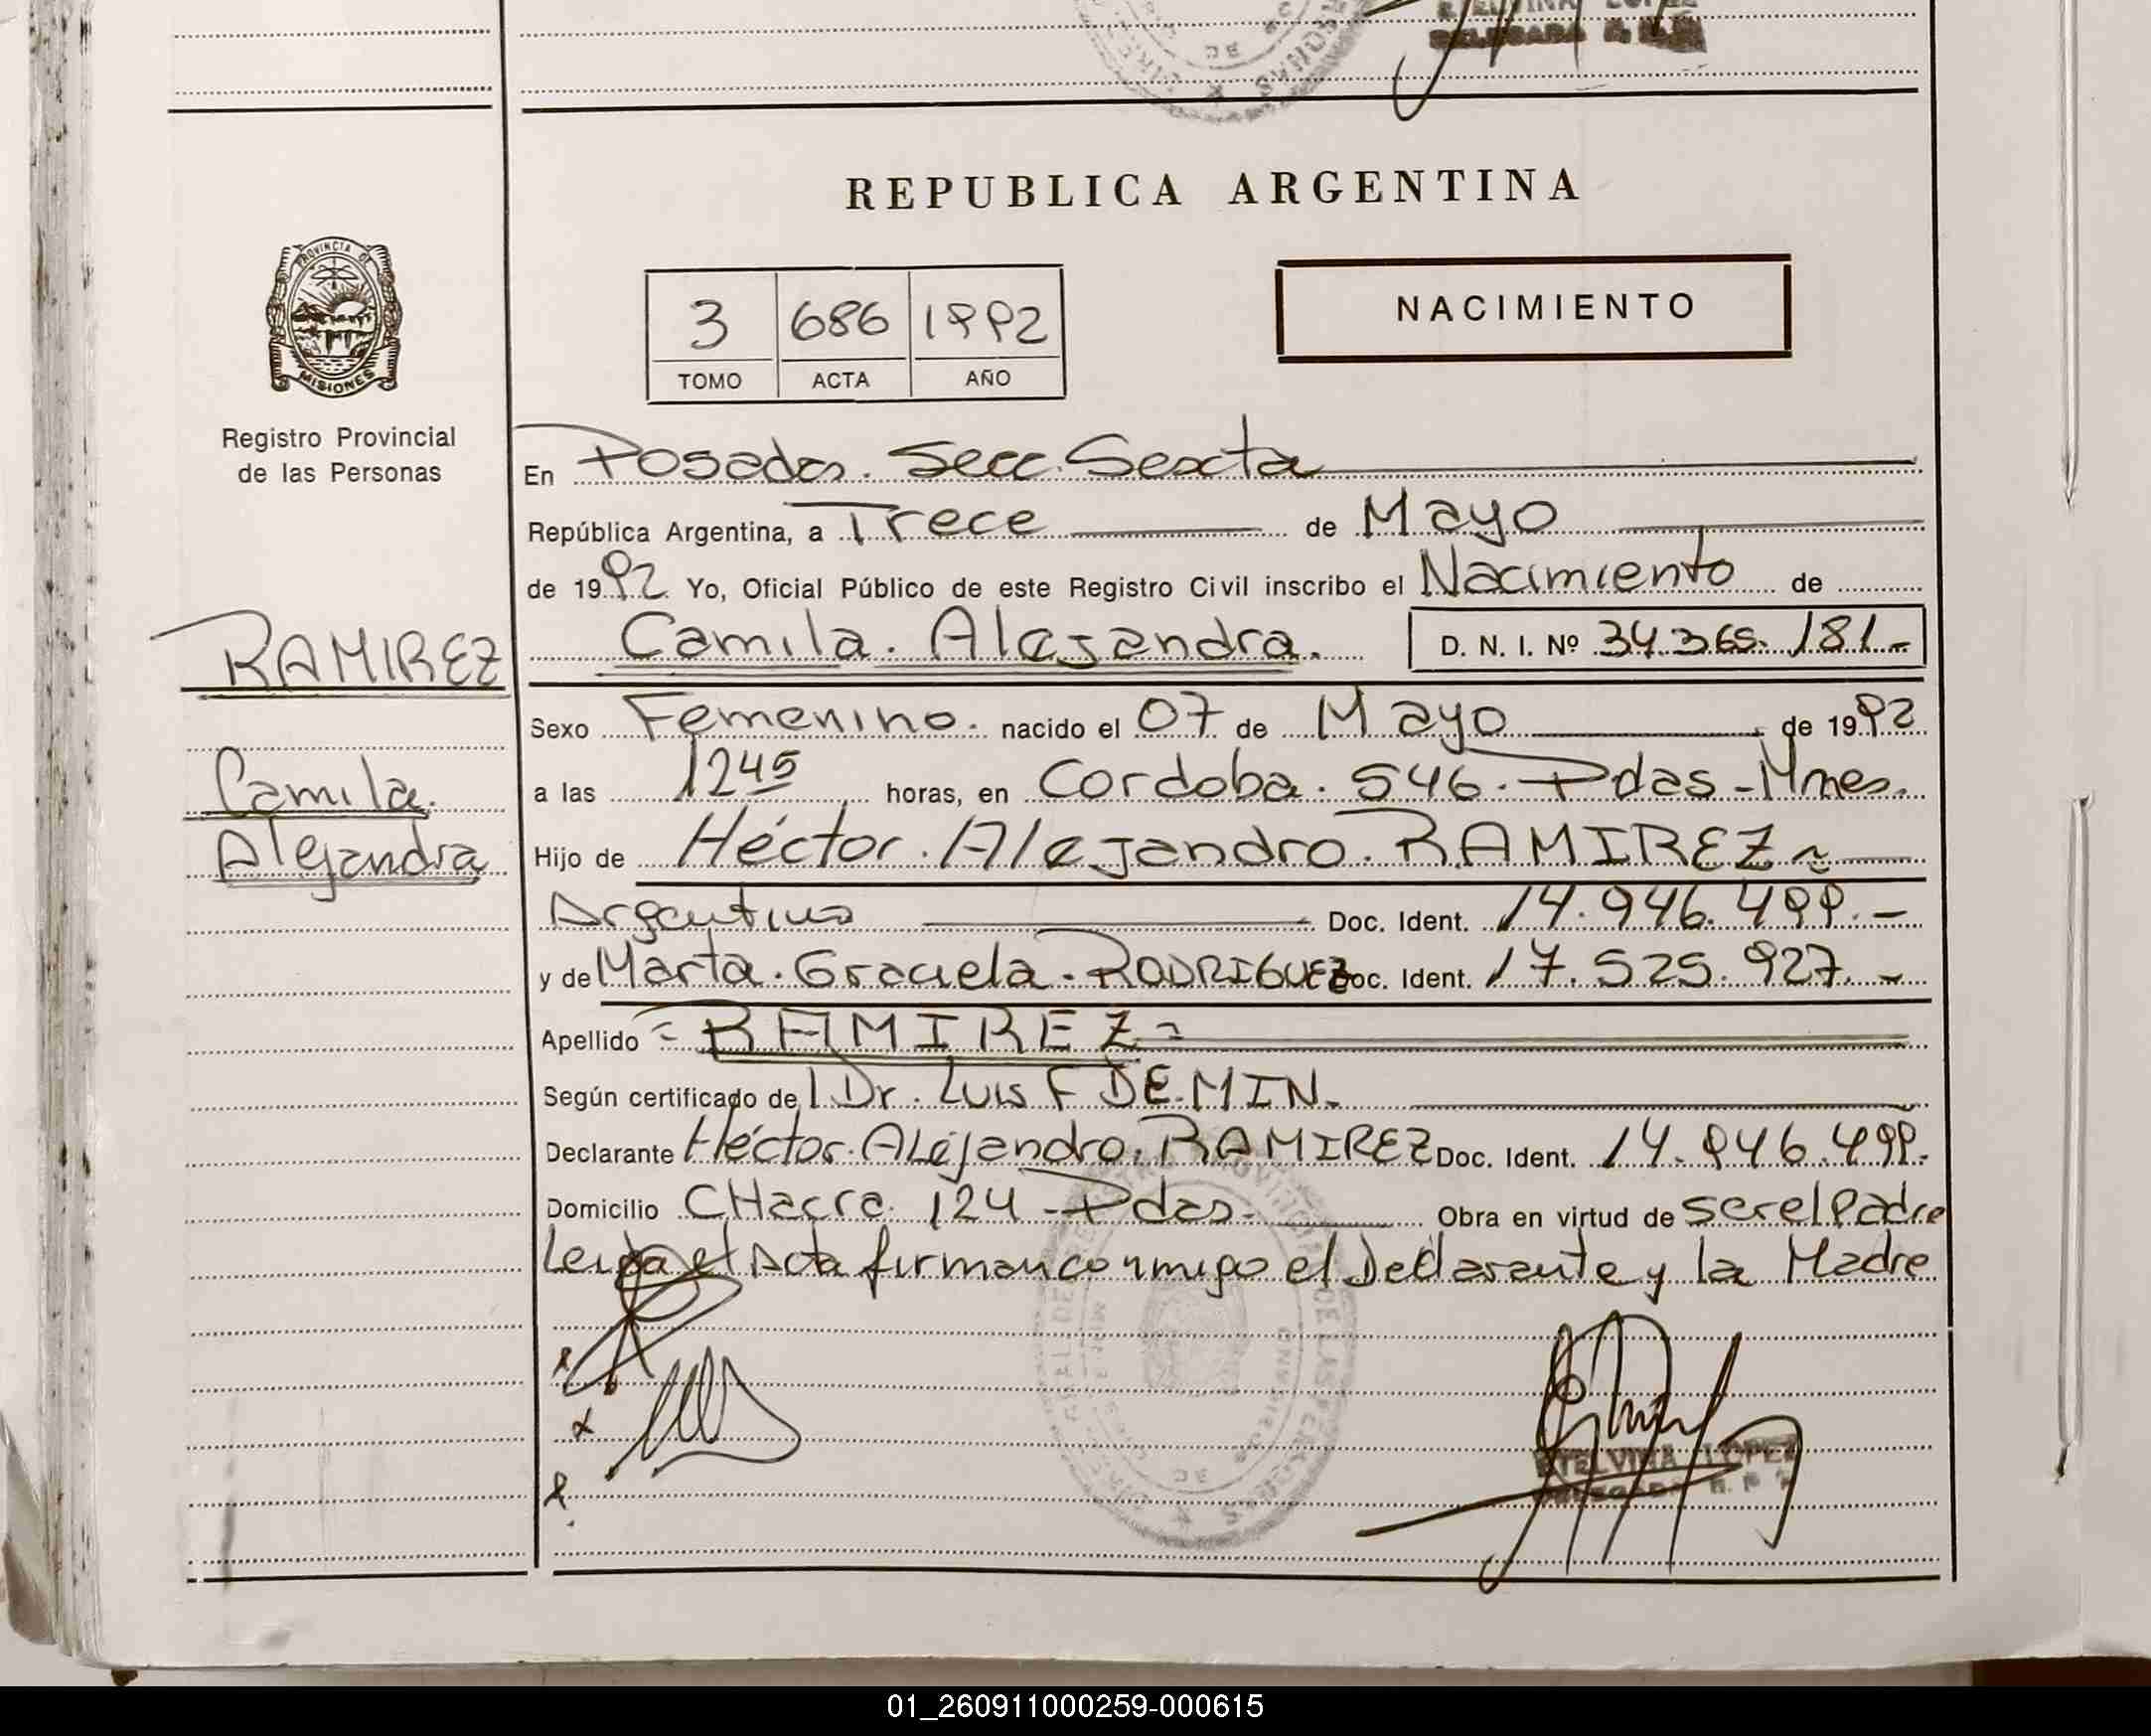 REPUBLICA ARGENTINA
PROVINCIA DE
MISIONES
Registro Provincial
de las Personas
3 686 1992
TOMO ACTA AÑO
NACIMIENTO
En Posadas. Secc. Sexta
República Argentina, a Trece de Mayo
de 1992 Yo, Oficial Público de este Registro Civil inscribo el Nacimiento de
Camila. Alejandra. D. N. I. Nº 34.365.181.-
RAMIREZ
Camila.
Alejandra
Sexo Femenino. nacido el 07 de Mayo de 1992
a las 1245 horas, en Cordoba. 546. Pdas-Mnes.
Hijo de Héctor. Alejandro. RAMIREZ
Argentino Doc. Ident. 14.946.499.-
y de Marta. Graciela. RODRIGUEZ Doc. Ident. 17.525.927.-
Apellido = RAMIREZ =
Según certificado de l Dr. Luis F DEMIN.
Declarante Héctor. ALejandro. RAMIREZ Doc. Ident. 14.946.499.
Domicilio CHacra 124 - Pdas. Obra en virtud de ser el Padre
Leida el Acta firman conmigo el Declarante y la Madre
ETELVINA LOPEZ
DELEGADA R. P.
01_260911000259-000615